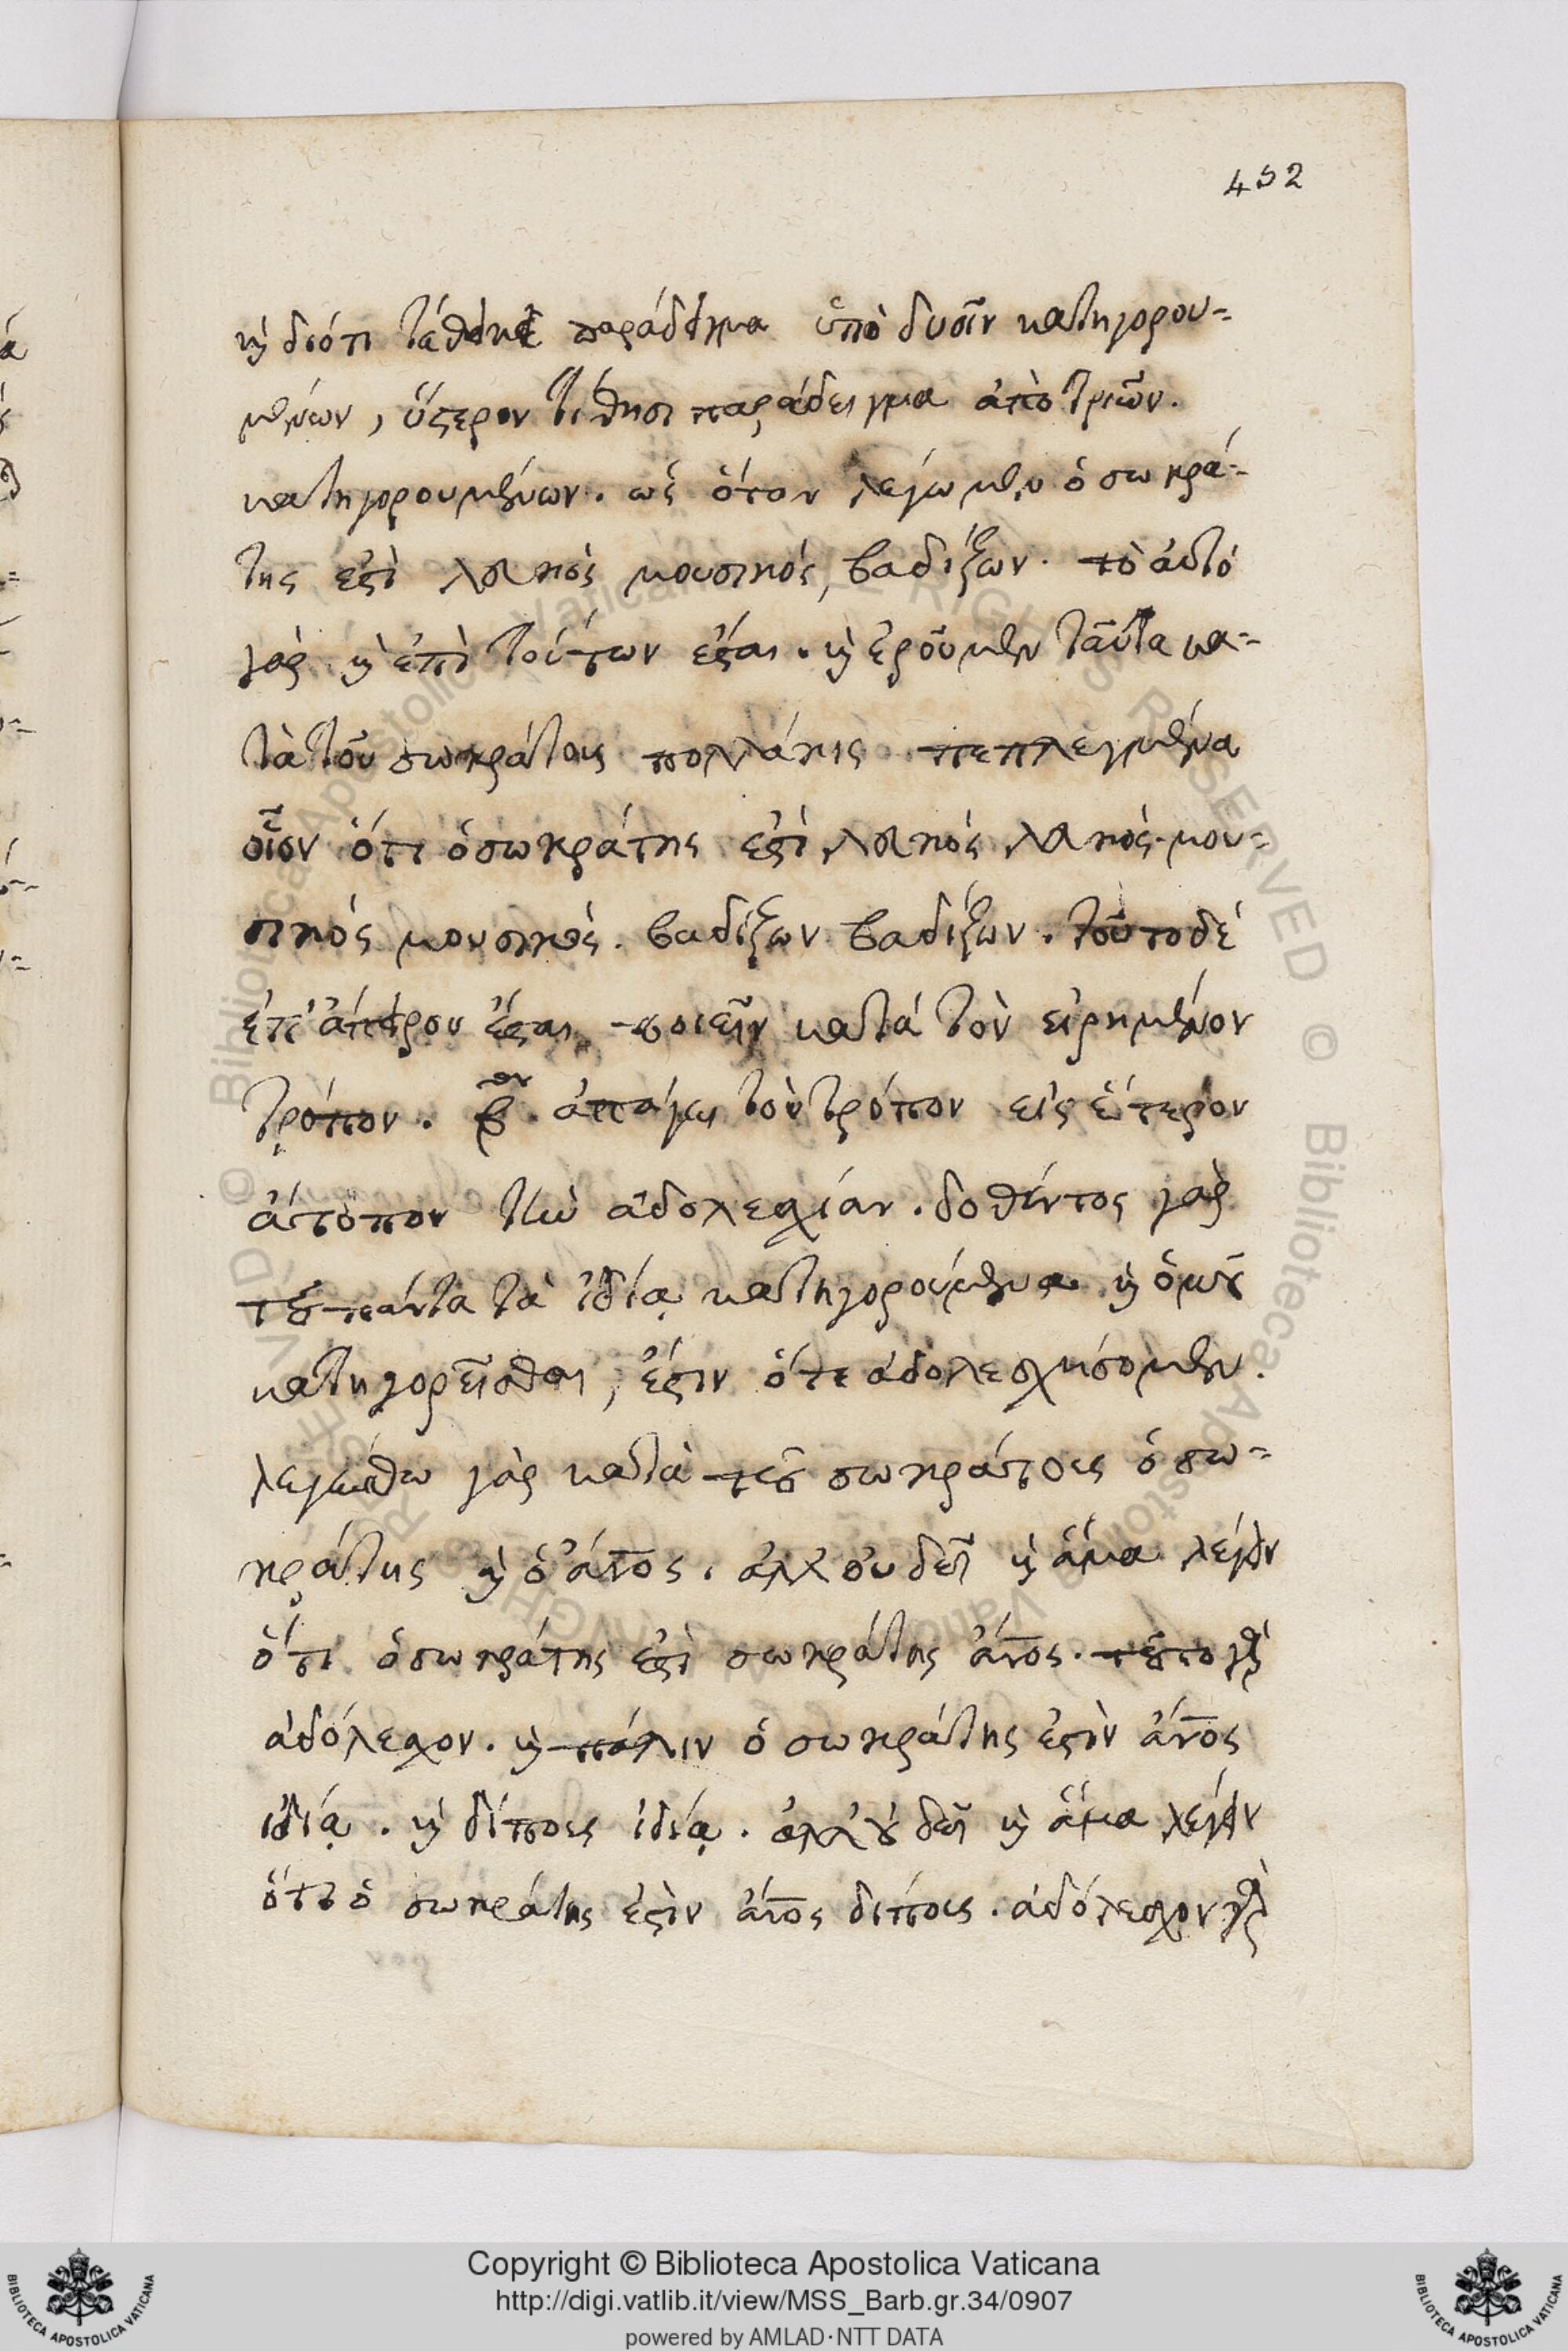 452
κ̀ διότι τέθεικε παράδειγμα ὑπὸ δυσῖν κατηγορου-
μένων, ὕστερον τίθησι παράδειγμα ἀπὸ τριῶν.
κατηγορουμένων. ὡς ὅταν λέγωμεν ὁ σωκρά-
της ἐστὶ λευκός μουσικός, βαδίζων. τὸ αὐτό
γὰρ κ̀ ἐπὶ τούτων ἔσται. κ̀ ἐροῦμεν ταῦτα κα-
τὰ τοῦ σωκράτους πολλάκις πεπλεγμένα
οἷον ὅτι ὁ σωκράτης ἐστὶ λευκός λευκός. μου-
σικός μουσικός. βαδίζων βαδίζων. τοῦτο δέ
ἐπ' ἄπειρον ἔσται ποιεῖν κατά τὸν εἰρημένον
τρόπον. β͞ον. ἀπάγει τὸν τρόπον εἰς ἕτερον
ἄτοπον τὴν ἀδολεσχίαν. δοθέντος γὰρ
τοῦ πάντα τὰ ἰδίᾳ κατηγορούμενα κ̀ ὁμοῦ
κατηγορεῖσθαι, ἔστιν ὅτε ἀδολεσχήσομεν.
λεγέσθω γὰρ κατὰ τοῦ σωκράτους ὁ σω-
κράτης κ̀ ὁ ἄνος. ἀλλ' οὐ δεῖ κ̀ ἅμα λέγειν
ὅτι ὁ σωκράτης ἐστὶ σωκράτης ἄνος. τοῦτο γὰρ
ἀδόλεσχον. κ̀ πάλιν ὁ σωκράτης ἐστὶν ἄνος
ἰδίᾳ. κ̀ δίπους ἰδίᾳ. ἀλλ' οὐ δεῖ κ̀ ἅμα λέγειν
ὅτι ὁ σωκράτης ἐστὶν ἄνος δίπους. ἀδόλεσχον γὰρ
Copyright © Biblioteca Apostolica Vaticana
http://digi.vatlib.it/view/MSS_Barb.gr.34/0907
powered by AMLAD·NTT DATA